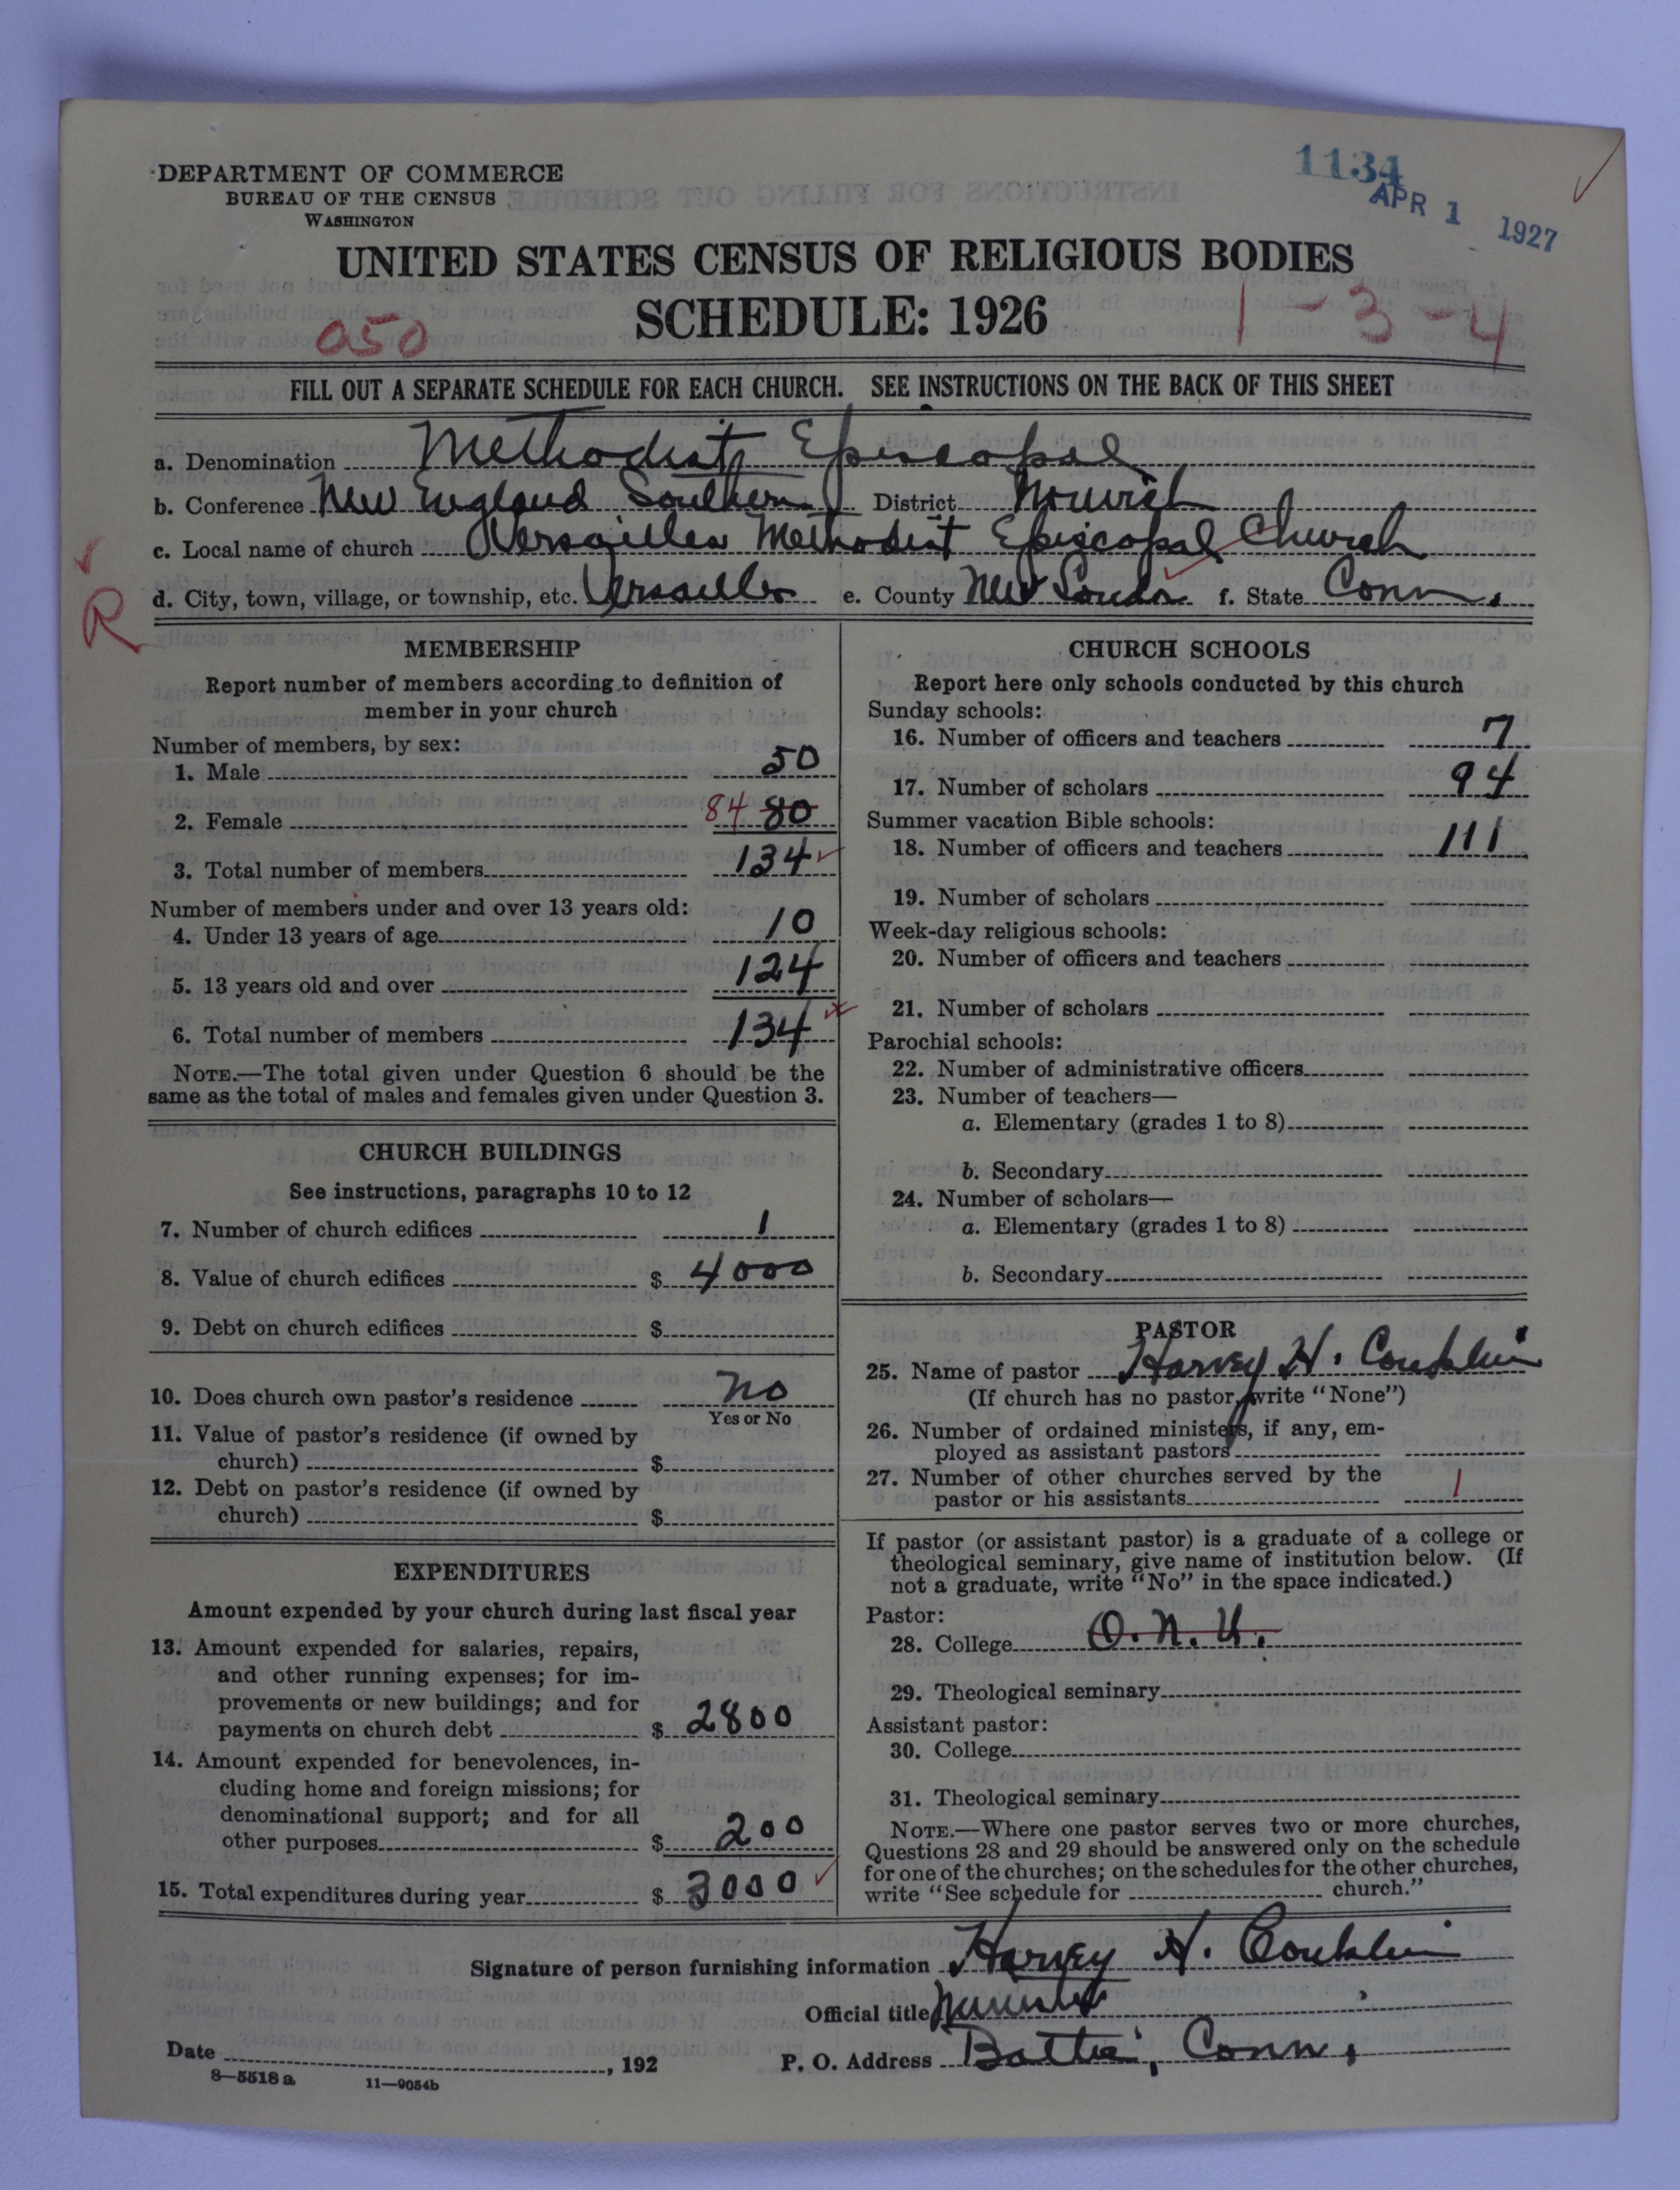 DEPARTMENT OF COMMERCE
BUREAU OF THE CENSUS
WASHINGTON
1134
APR 1 1927
UNITED STATES CENSUS OF RELIGIOUS BODIES
SCHEDULE: 1926
050
1-3-4
FILL OUT A SEPARATE SCHEDULE FOR EACH CHURCH. SEE INSTRUCTIONS ON THE BACK OF THIS SHEET
a. Denomination Methodist Episcopal
b. Conference New England Southern District Norwich
c. Local name of church Versailles Methodist Episcopal Church
d. City, town, village, or township, etc. Versailles e. County New London f. State Conn.
R
MEMBERSHIP
Report number of members according to definition of
member in your church
Number of members, by sex:
1. Male 50
2. Female 84 80
3. Total number of members 134
Number of members under and over 13 years old:
4. Under 13 years of age 10
5. 13 years old and over 124
6. Total number of members 134
NOTE.—The total given under Question 6 should be the
same as the total of males and females given under Question 3.
CHURCH BUILDINGS
See instructions, paragraphs 10 to 12
7. Number of church edifices 1
8. Value of church edifices $ 4000
9. Debt on church edifices $
10. Does church own pastor's residence No
Yes or No
11. Value of pastor's residence (if owned by
church) $
12. Debt on pastor's residence (if owned by
church) $
EXPENDITURES
Amount expended by your church during last fiscal year
13. Amount expended for salaries, repairs,
and other running expenses; for im-
provements or new buildings; and for
payments on church debt $ 2800
14. Amount expended for benevolences, in-
cluding home and foreign missions; for
denominational support; and for all
other purposes $ 200
15. Total expenditures during year $ 3000
CHURCH SCHOOLS
Report here only schools conducted by this church
Sunday schools:
16. Number of officers and teachers 7
17. Number of scholars 94
Summer vacation Bible schools:
18. Number of officers and teachers 111
19. Number of scholars
Week-day religious schools:
20. Number of officers and teachers
21. Number of scholars
Parochial schools:
22. Number of administrative officers
23. Number of teachers—
a. Elementary (grades 1 to 8)
b. Secondary
24. Number of scholars—
a. Elementary (grades 1 to 8)
b. Secondary
PASTOR
25. Name of pastor Harvey H. Conklin
(If church has no pastor, write "None")
26. Number of ordained ministers, if any, em-
ployed as assistant pastors
27. Number of other churches served by the
pastor or his assistants 1
If pastor (or assistant pastor) is a graduate of a college or
theological seminary, give name of institution below. (If
not a graduate, write "No" in the space indicated.)
Pastor:
28. College O.N.U.
29. Theological seminary
Assistant pastor:
30. College
31. Theological seminary
NOTE.—Where one pastor serves two or more churches,
Questions 28 and 29 should be answered only on the schedule
for one of the churches; on the schedules for the other churches,
write "See schedule for church."
Signature of person furnishing information Harvey H. Conklin
Official title Minister
Date , 192 P. O. Address Baltic, Conn.
8—5518 a 11—9054b